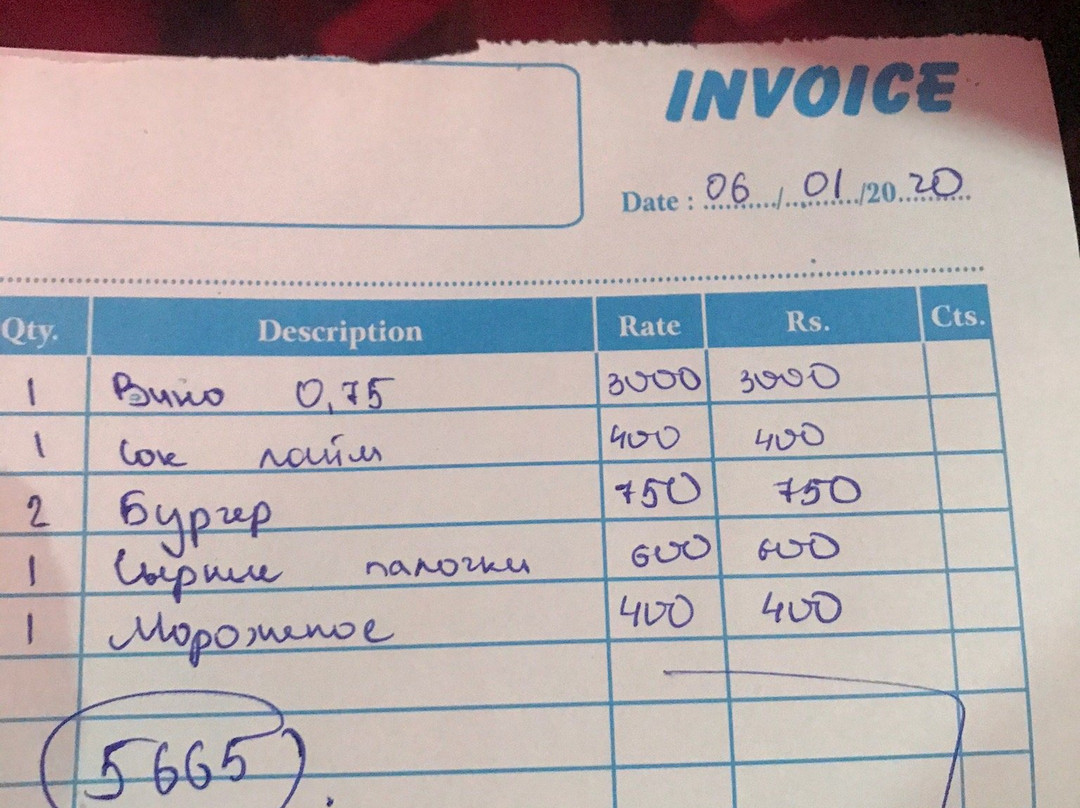 INVOICE
Date : 06 / 01 /20 20
Qty. Description Rate Rs. Cts.
1 Вино 0,75 3000 3000
1 Сок лайм 400 400
2 Бургер 750 750
1 Сырные палочки 600 600
1 Мороженое 400 400
5665